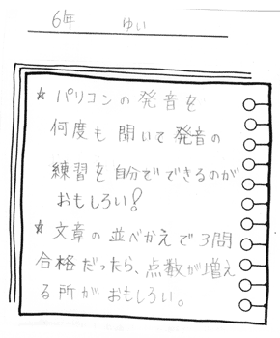 6年 ゆい
★ パソコンの発音を
何度も聞いて発音の
練習を自分でできるのが
おもしろい!
★文章の並べかえで3問
合格だったら、点数が増え
る所がおもしろい。